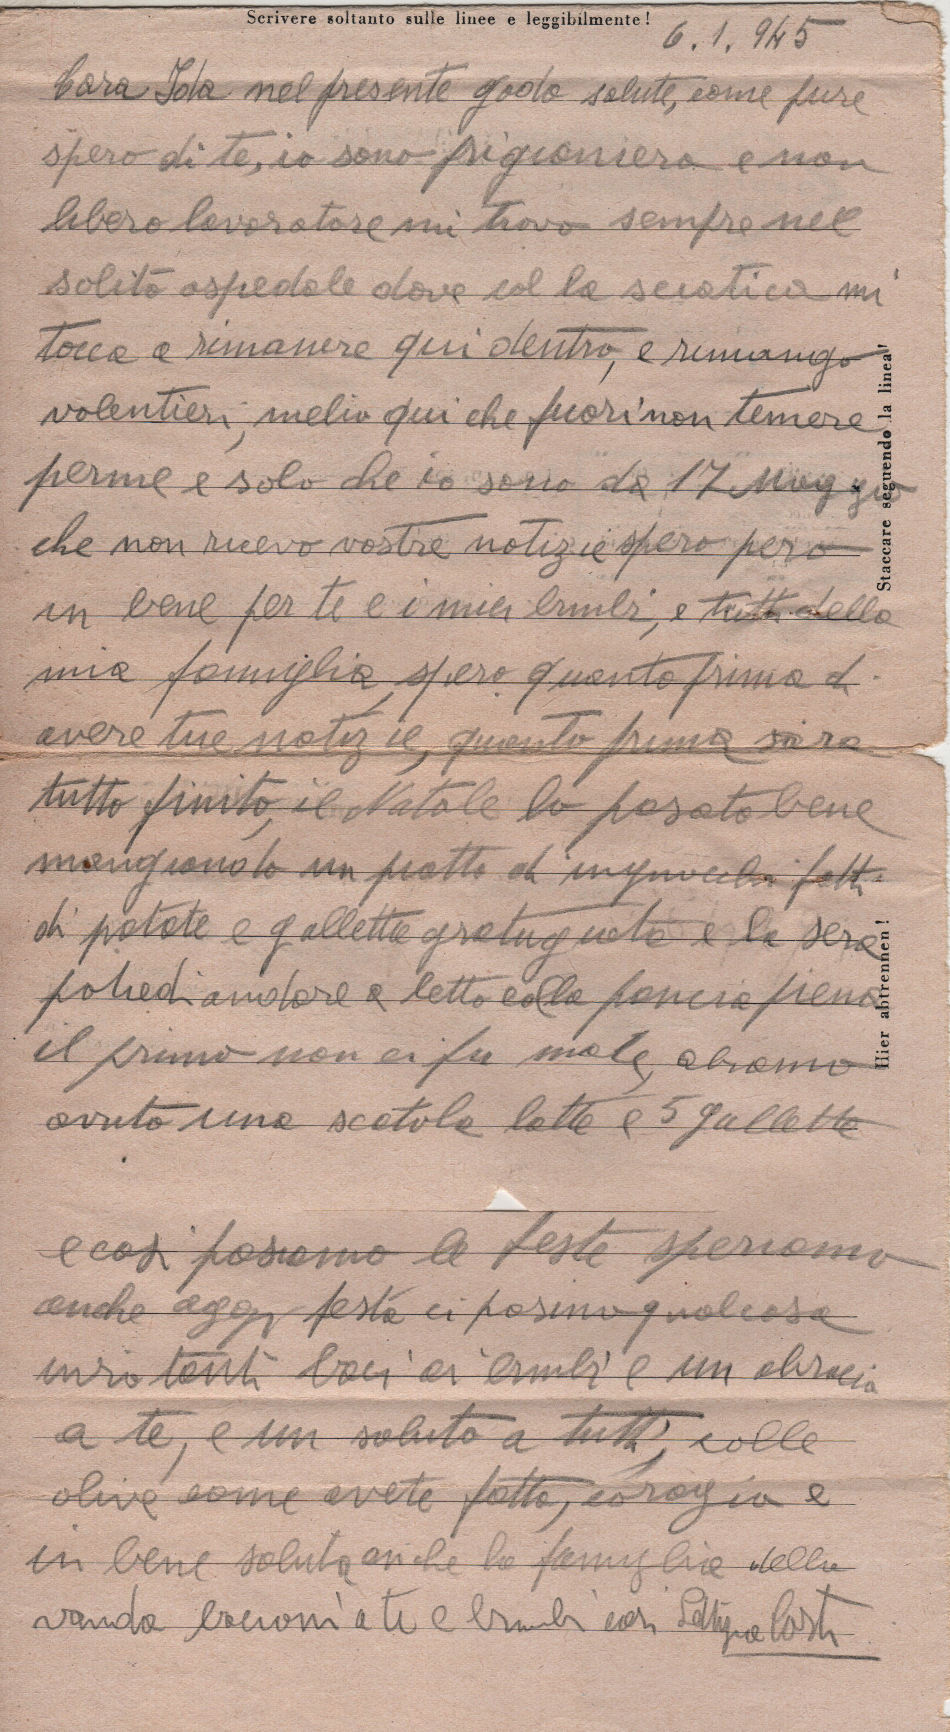 Scrivere soltanto sulle linee e leggibilmente!
6.1.945
Cara Ida nel presente godo salute, come pure
spero di te, io sono prigioniero e non
libero lavoratore mi trovo sempre nel
solito ospedale dove col la sciatica mi
tocca a rimanere qui dentro, e rimango
volentieri, melio qui che fuori non temere
perme e solo che io sono da 17 Maggio
che non ricevo vostre notizie spero pero
in bene per te e i miei bimbi, e tutti della
mia famiglia, spero quanto prima di
avere tue notizie, quanto prima sara
tutto finito, il Natale lo pasato bene
mangiando un piatto di ingnocchi fatti
di patate e galletta gratugiata e la sera
potiedi andare a letto colla pancia piena
il primo non ci fu male, abiamo
avuto una scatola latte e 5 gallette
e cosi pasiamo le feste speriamo
anche oggi festa ci pasino qualcosa
invio tanti baci ai bimbi e un abracio
a te, e un saluto a tutti, colle
olive come avete fatto, coragio e
in bene saluta anche la famiglia della
vanda bacioni a te e bimbi cari
Staccare seguendo la linea!
Hier abtrennen!